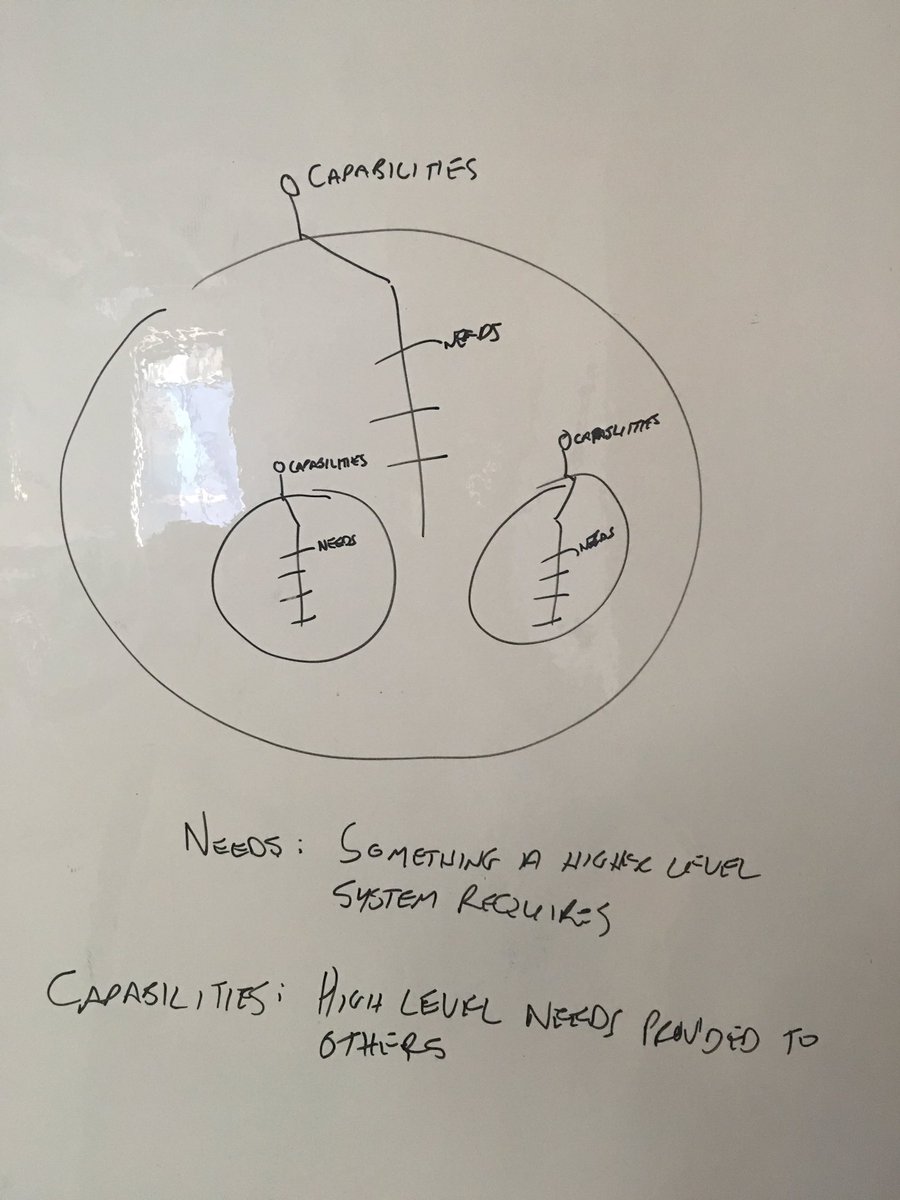 CAPABILITIES
NEEDS
CAPABILITIES
CAPABILITIES
NEEDS
NEEDS
NEEDS: SOMETHING A HIGHER LEVEL
SYSTEM REQUIRES
CAPABILITIES: HIGH LEVEL NEEDS PROVIDED TO
OTHERS